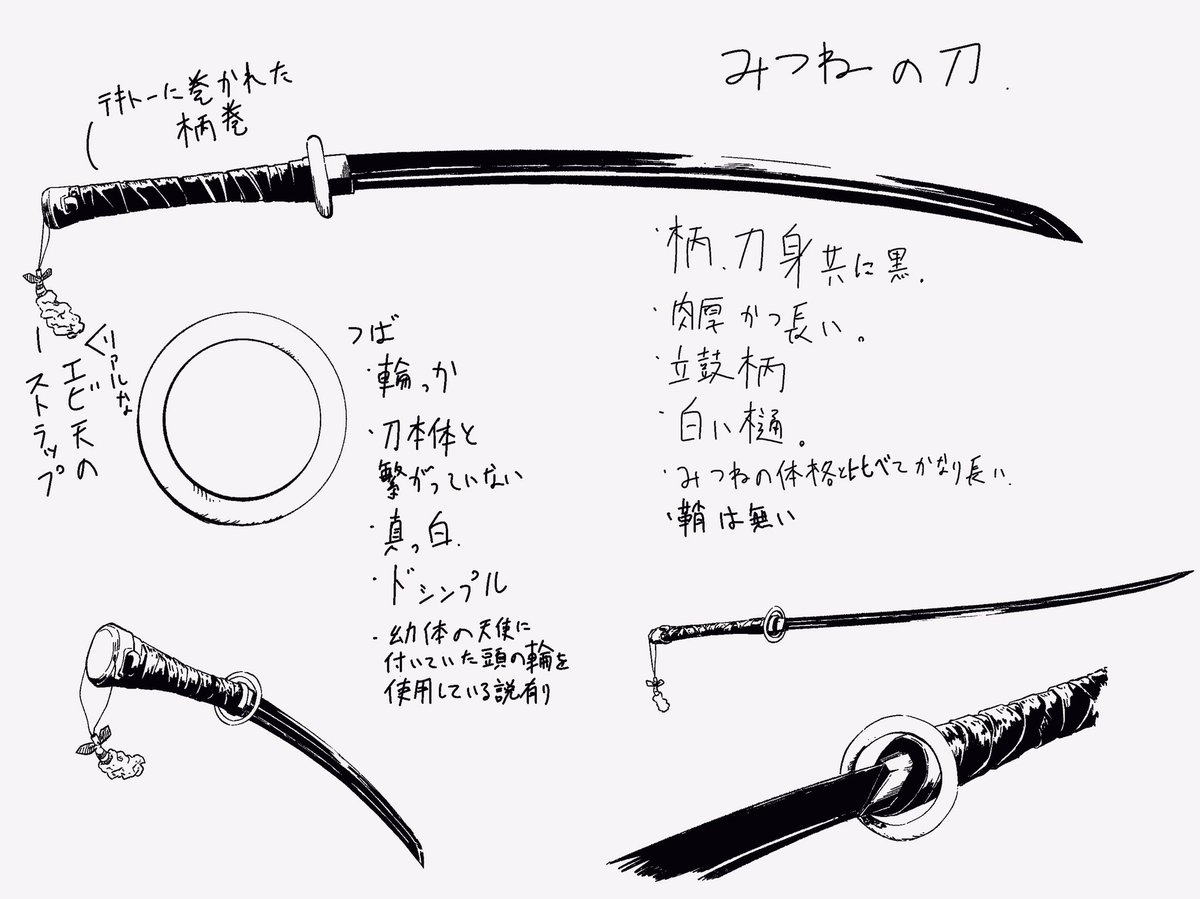 みつねの刀.
テキトーに巻かれた
柄巻
リアルな
エビ天の
ストラップ
つば
・輪っか
・刀本体と
繋がっていない
・真っ白.
・ドシンプル
・幼体の天使に
付いていた頭の輪を
使用している説有り
・柄、刀身共に黒.
・肉厚かつ長い。
・立鼓柄
・白い樋。
・みつねの体格と比べてかなり長い.
・鞘は無い